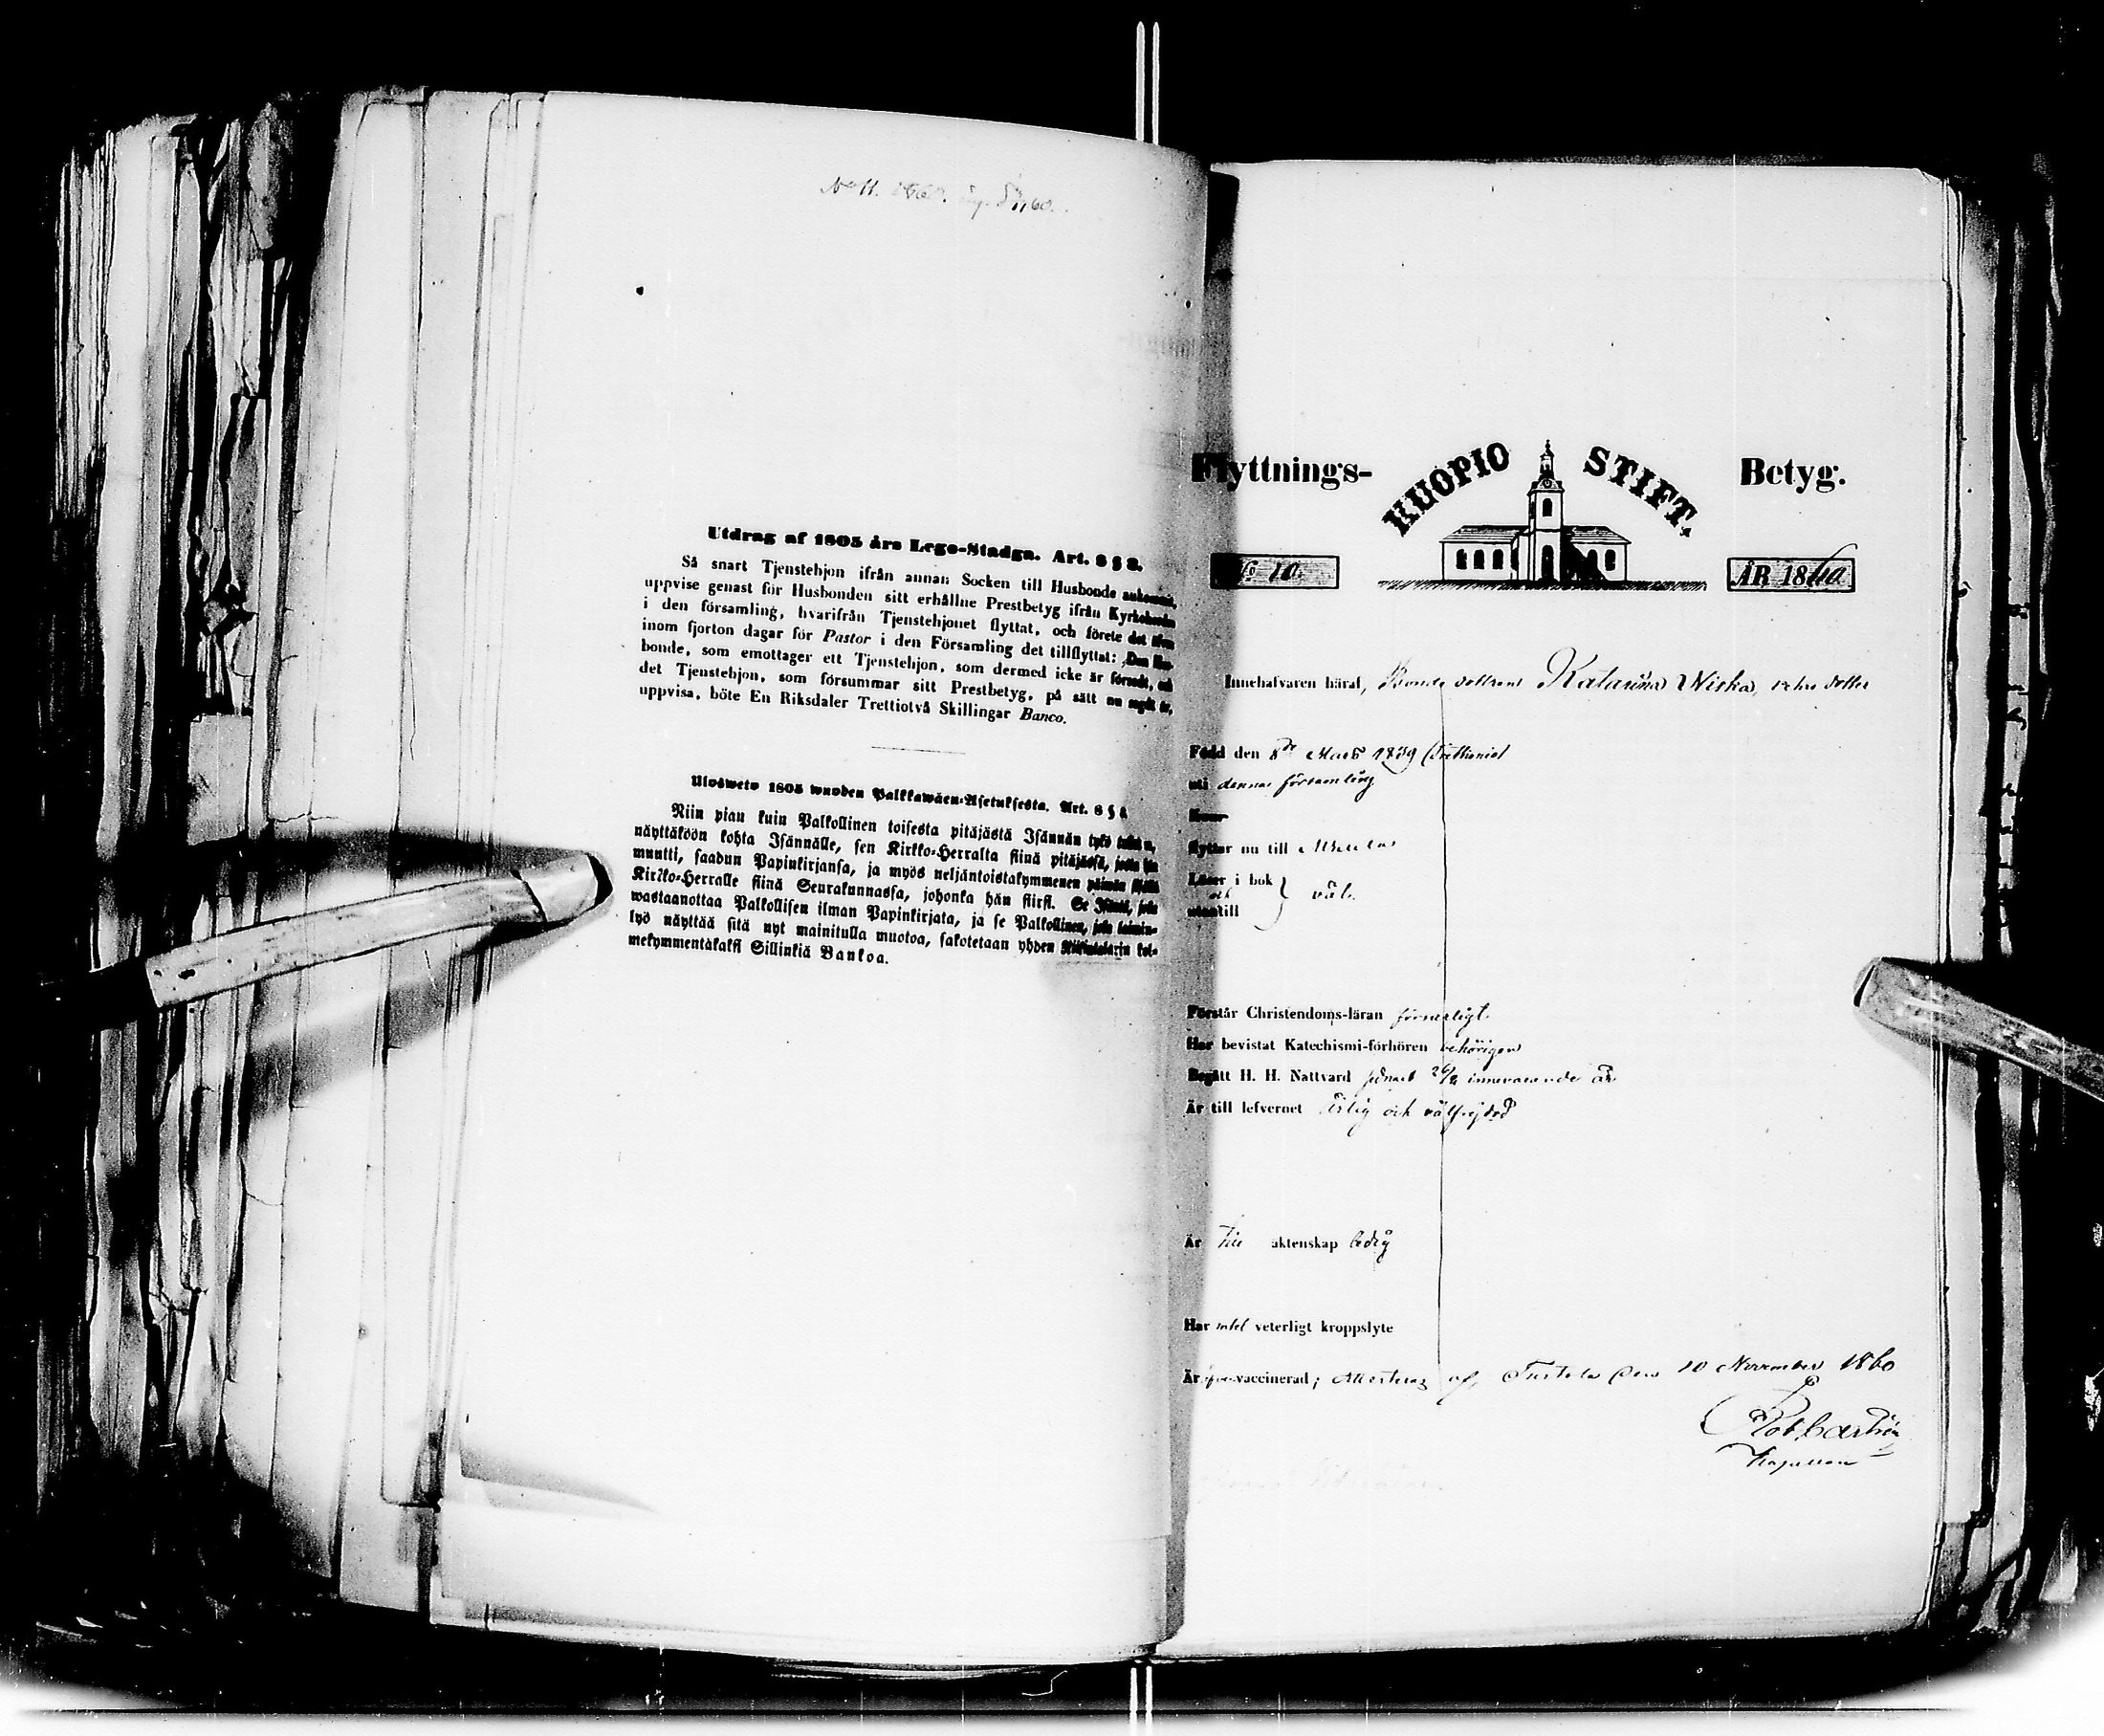 No 11.
Utdrag af 1805 års Lego-Stadga. Art. 8 § 8.
Så snart Tjenstehjon ifrån annan Socken till Husbonde ankommit,
uppvise genast för Husbonden sitt erhållne Prestbetyg ifrån Kyrkoherden
i den församling, hvarifrån Tjenstehjonet flyttat, och förete det äfven
inom fjorton dagar för Pastor i den Församling det tillflyttat: Den Hus-
bonde, som emottager ett Tjenstehjon, som dermed icke är försedt, och
det Tjenstehjon, som försummar sitt Prestbetyg, på sätt nu sagdt är,
uppvisa, böte En Riksdaler Trettiotvå Skillingar Banco.
Ulosweto 1805 wuoden Palkkawäen-Asetuksesta. Art. 8 §
Niin pian kuin Palkollinen toisesta pitäjästä Isännän tykö
näyttäköön kohta Isännälle, sen Kirkko-Herralta siinä pitäjässä, josta hän
muutti, saadun Papinkirjansa, ja myös neljäntoistakymmenen päiwän
Kirkko-Herralle siinä Seurakunnassa, johonka hän siirsi. Se Isäntä, joka
wastaanottaa Palkollisen ilman Papinkirjata, ja se Palkollinen, joka laimin-
lyö näyttää sitä nyt mainitulla muotoa, sakotetaan yhden Riksitalarin kol-
mekymmentäkaksi Sillinkiä Bankoa.
Flyttnings- KUOPIO STIFT. Betyg.
No 10. ÅR 1860
Innehafvaren häraf, Bonde dottren Katarina Niska,
Född den 8de Mars 1839
uti denna församling
flyttar nu till
Läser i bok
och väl.
utantill
Förstår Christendoms-läran försvarligt.
Har bevistat Katechismi-förhören behörigen
Begått H. H. Nattvard senast innevarande år
Är till lefvernet ärlig och välfrejdad
Är till äktenskap ledig
Har intet veterligt kroppslyte
Är vaccinerad; attesteras af, den 10 November 1860